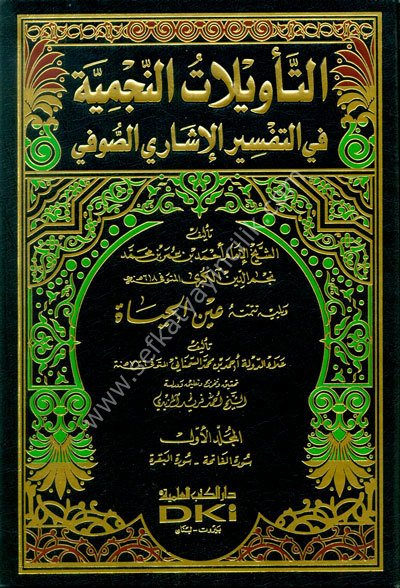 التأويلات النجمية
في التفسير الإشاري الصوفي
تأليف
الشيخ الإمام أحمد بن عمر بن محمد
نجم الدين الكبرى المتوفى ٦١٨ هـ سنة
ويليه تتمته عين الحياة
تأليف
علاء الدولة أحمد بن محمد السمناني المتوفى ٧٣٦ هـ سنة
تحقيق وتخريج وتعليق ودراسة
الشيخ أحمد فريد المزيدي
المجلد الأول
سورة الفاتحة - سورة البقرة
دار الكتب العلمية
DKi
بيروت - لبنان
www.sefkatyayincilik.com